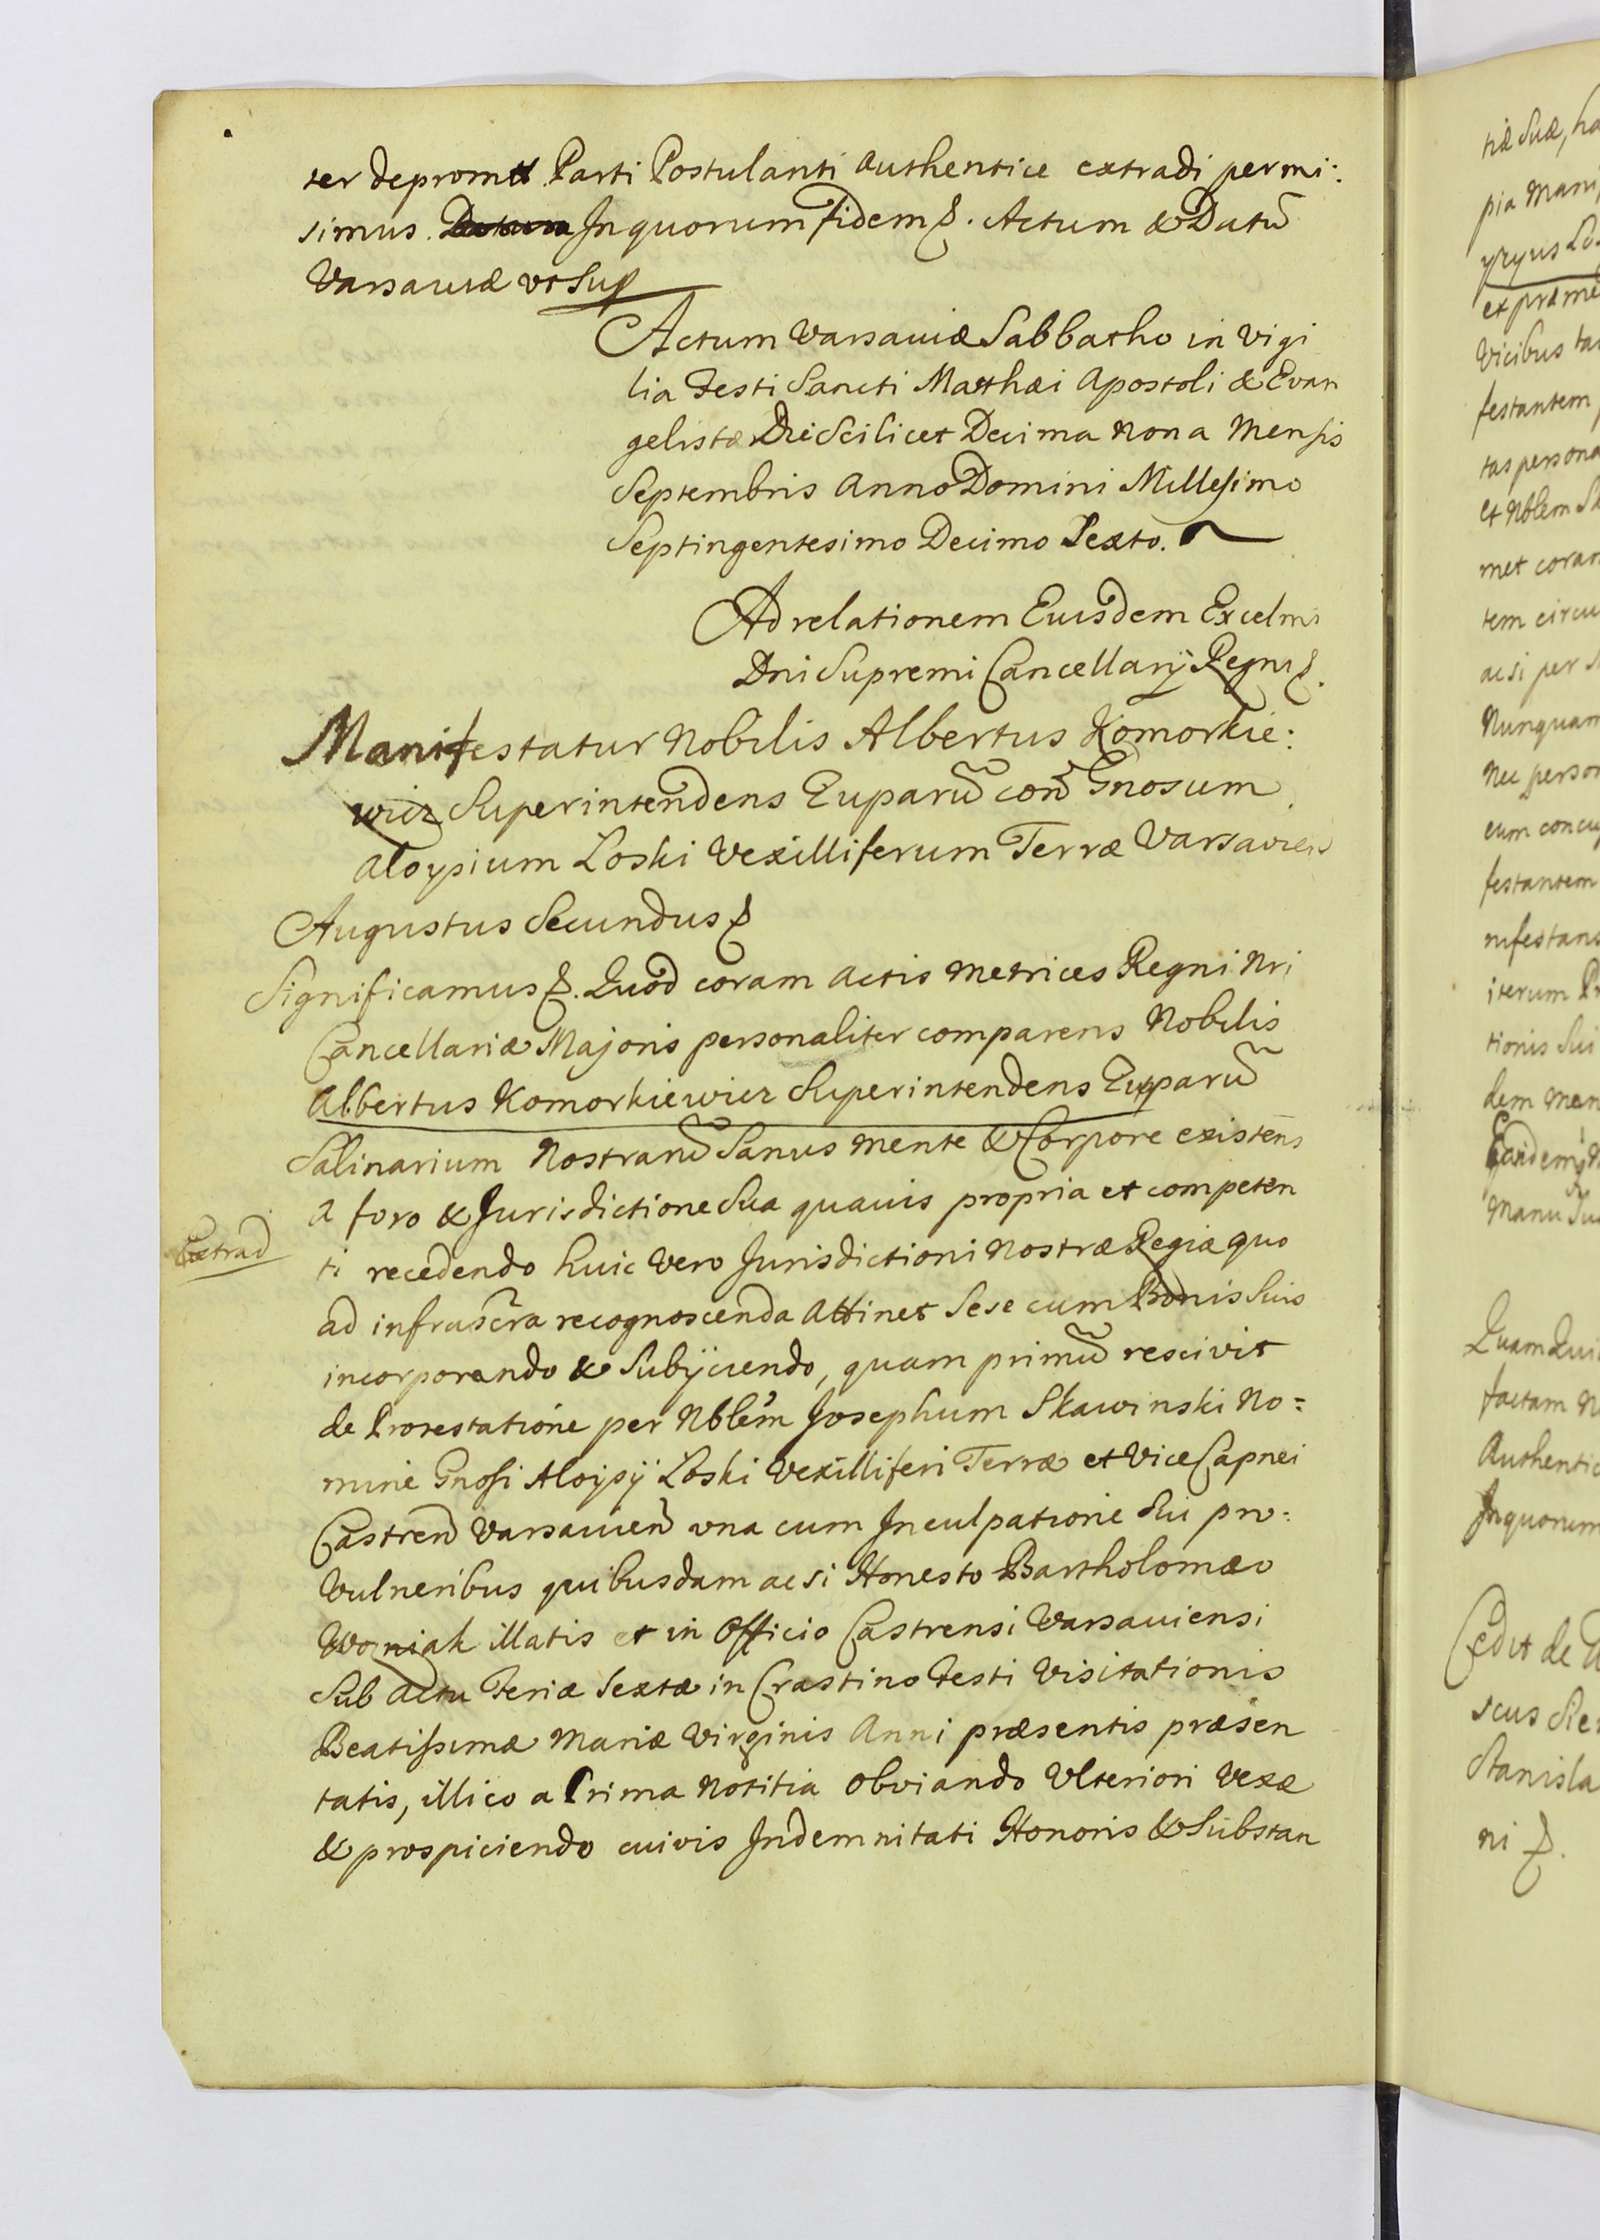 ter depromtt Parti Postulanti Authentice extradi permi:
simus. Inquorum fidem &. Actum & Datũ
Varsaviæ ut sup
Actum Varsaviæ Sabbatho in Vigi
lia Festi Sancti Matthæi Apostoli & Evan
gelistæ Die Scilicet Decima Nona Mensis
Septembris Anno Domini Millesimo
Septingentesimo Decimo Sexto.
Ad relationem Eiusdem Excelmi
Dni Supremi Cancellarij Regni &.
Manifestatur Nobilis Albertus Komorkie:
wicz Superintendens Zuparũ con Gnosum
Aloysium Loski Vexilliferum Terræ Varsavien
Augustus Secundus &
Significamus &. Quod coram Actis Metrices Regni Nri
Cancellariæ Majoris personaliter comparens Nobilis
Albertus Komorkiewicz Superintendens Zuparũ
Salinarium Nostrarũ Sanus mente & Corpore existens
a foro & Jurisdictione Sua quavis propria et competen
Extrad
ti recedendo huic vero Jurisdictioni Nostræ Regiæ quo
ad infrascra recognoscenda Attinet Sese cum Bonis Suis
incorporando & Subijciendo, quam primũ rescivit
de Protestatione per Nblem Josephum Skawinski No=
mine Gnosi Aloysij Loski Vexilliferi Terræ et Vice Capnei
Castren Varsavien una cum Inculpatione Sui pro:
Vulneribus quibusdam ac si Honesto Bartholomæo
Wozniak illatis et in Officio Castrensi Varsaviensi
Sub Actu Feriæ Sextæ in Crastino Festi Visitationis
Beatissimæ Mariæ Virginis Anni præsentis præsen
tatis, illico a Prima Notitia Obviando Ulteriori Vexæ
& prospiciendo cuivis Indemnitati Honoris & Substan
tiæ Suæ, ha
pia Mani
Vicibus
festantem
tas persona
et Nblem Sk
met coram
tem circu
ac si per
Nunquam
Nec person
eum
festantem
nifestans
iterum Pr
tionis Sui
dem
Manu
Quam
factam
Authentic
Inquorum
Cedit de
scus
Stanisla
ni &.